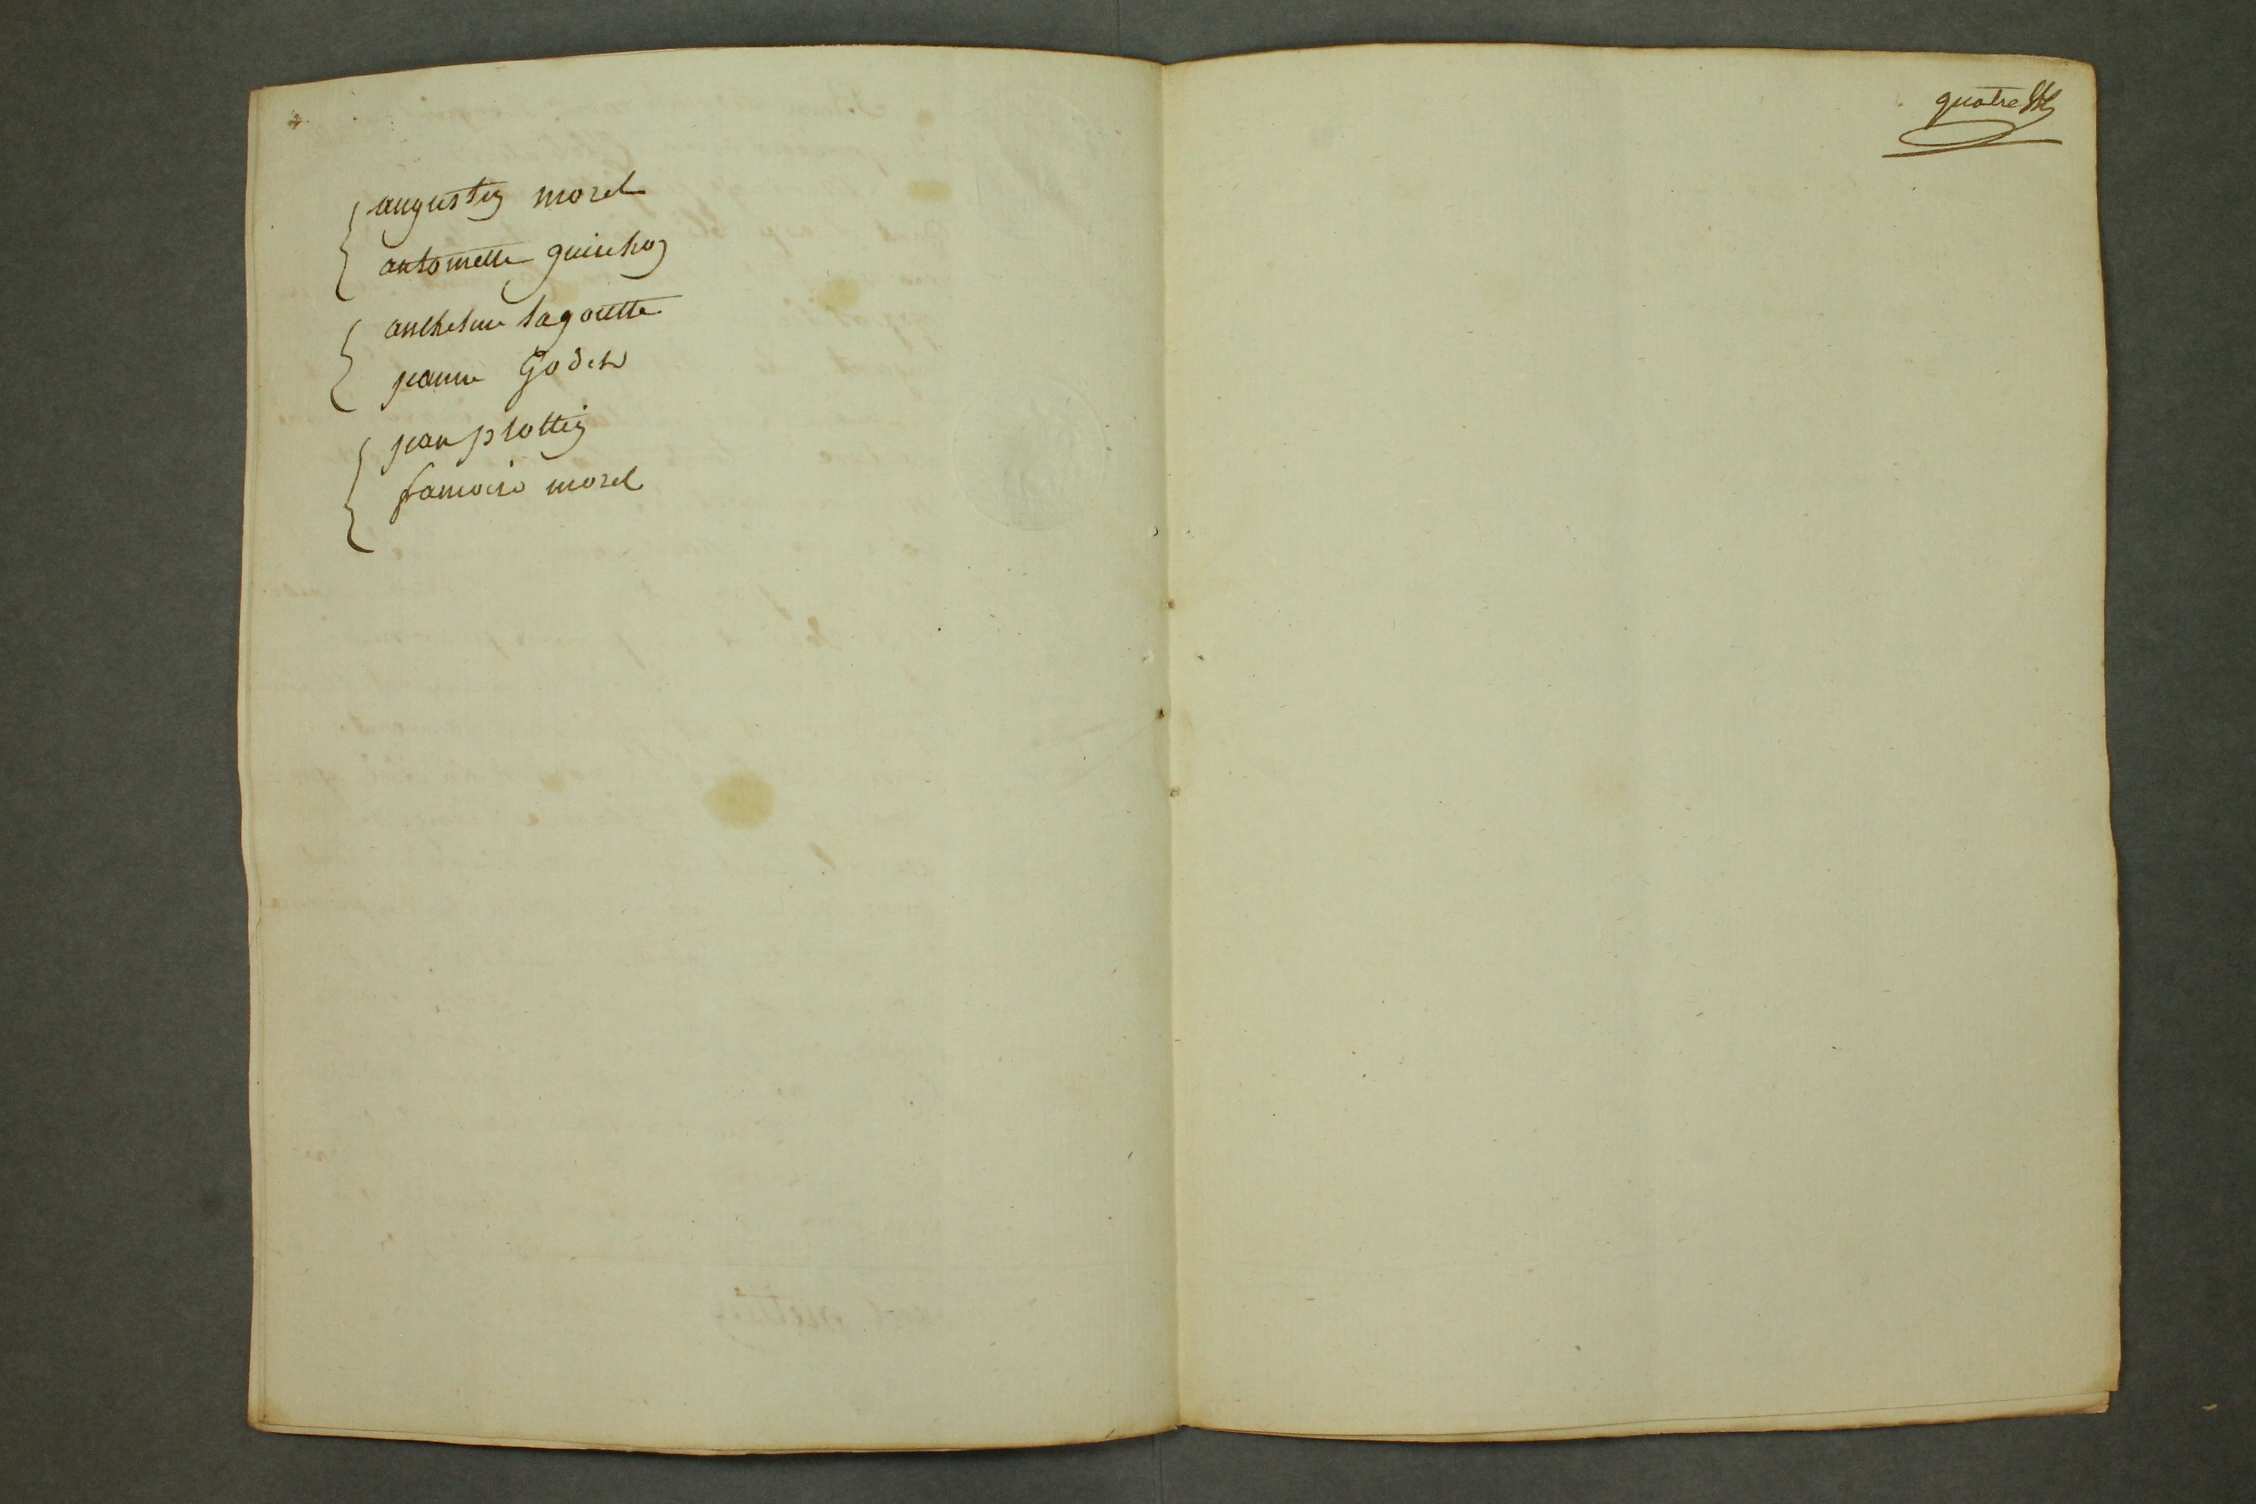 augustin morel
antoinette guichon
anthelme lagoutte
jeanne Godet
jean plottin
francoise morel
quatre